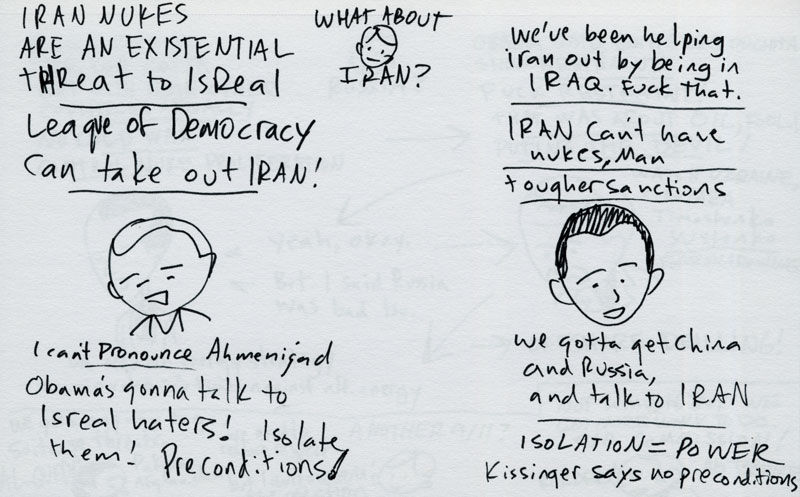 IRAN NUKES
ARE AN EXISTENTIAL
tHReat to IsReal
League of Democracy
Can take out IRAN!
WHAT ABOUT
IRAN?
we've been helping
iran out by being in
IRAQ. Fuck that.
IRAN Can't have
nukes, Man
tougher sanctions
I can't Pronounce Ahmenijad
Obama's gonna talk to
Isreal haters! Isolate
them - Preconditions!
we gotta get China
and Russia,
and talk to IRAN
ISOLATION = POWER
Kissinger says no preconditions
yeah, okay.
But I said Russia
was bad